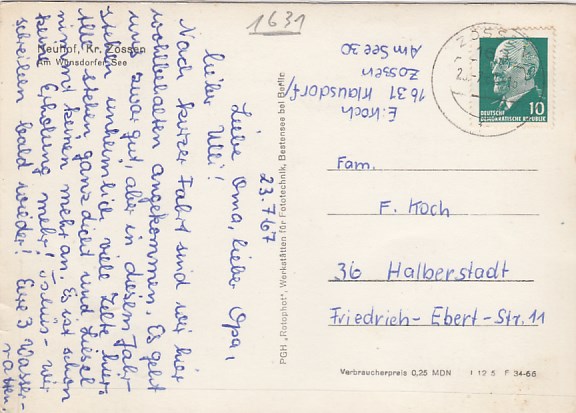 1631
Neuhof, Kr. Zossen
Am Wünsdorfer See
23.7.67
Liebe Oma, lieber Opa,
lieber Ulli!
Nach kurzer Fahrt sind wir hier
wohlbehalten angekommen. Es geht
uns zwar gut, aber in diesem Jahr
stehen unheimlich viele Zelte hier.
Alle stehen ganz dicht und Liesel
nimmt keinen mehr an. Es ist schon
keine Erholung mehr! Tschüs - wir
schreiben bald wieder! Eure 3 Wasser-
ratten!
PGH „Rotophot", Werkstätten für Fototechnik, Bestensee bei Berlin
E. Koch
1631 Klausdorf/
Zossen
Am See 30
ZOSSEN
DEUTSCHE
DEMOKRATISCHE REPUBLIK
10
Fam.
F. Koch
36 Halberstadt
Friedrich-Ebert-Str. 11
Verbraucherpreis 0,25 MDN I 12 5 F 34-66